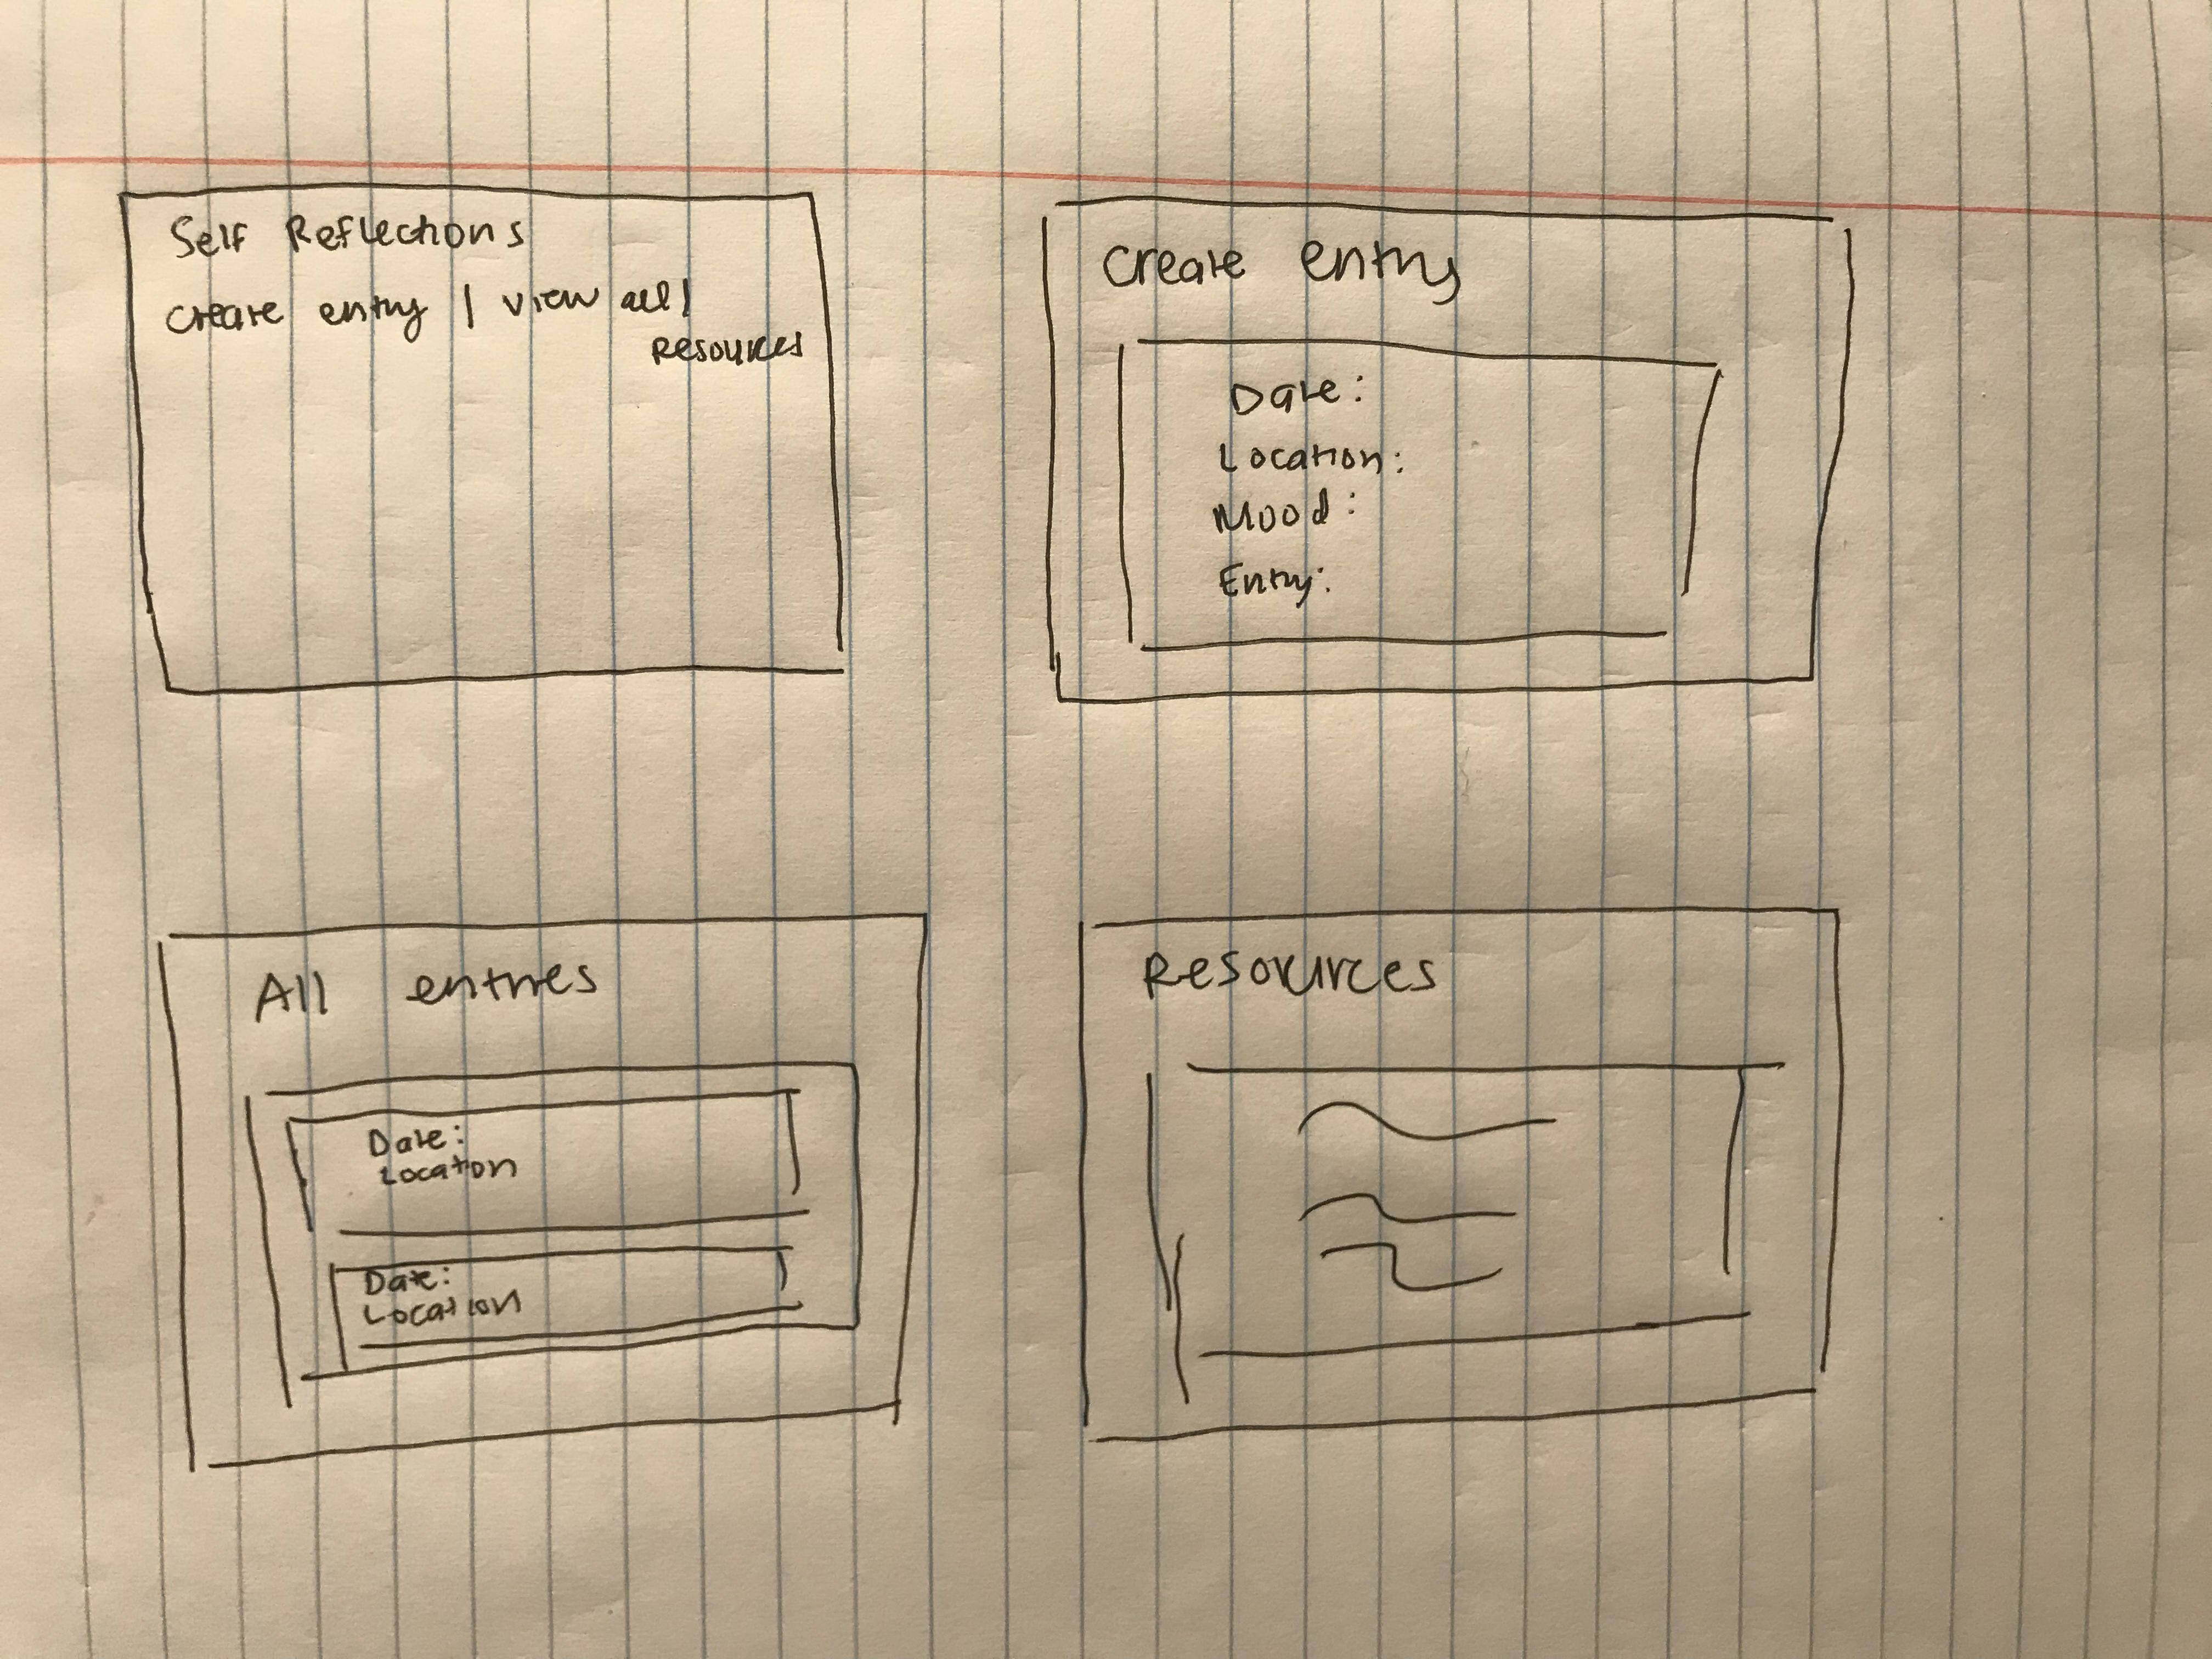 Self Reflections
create entry | view all |
resources
create entry
Date:
Location:
Mood:
Entry:
All entries
Date:
Location
Date:
Location
Resources